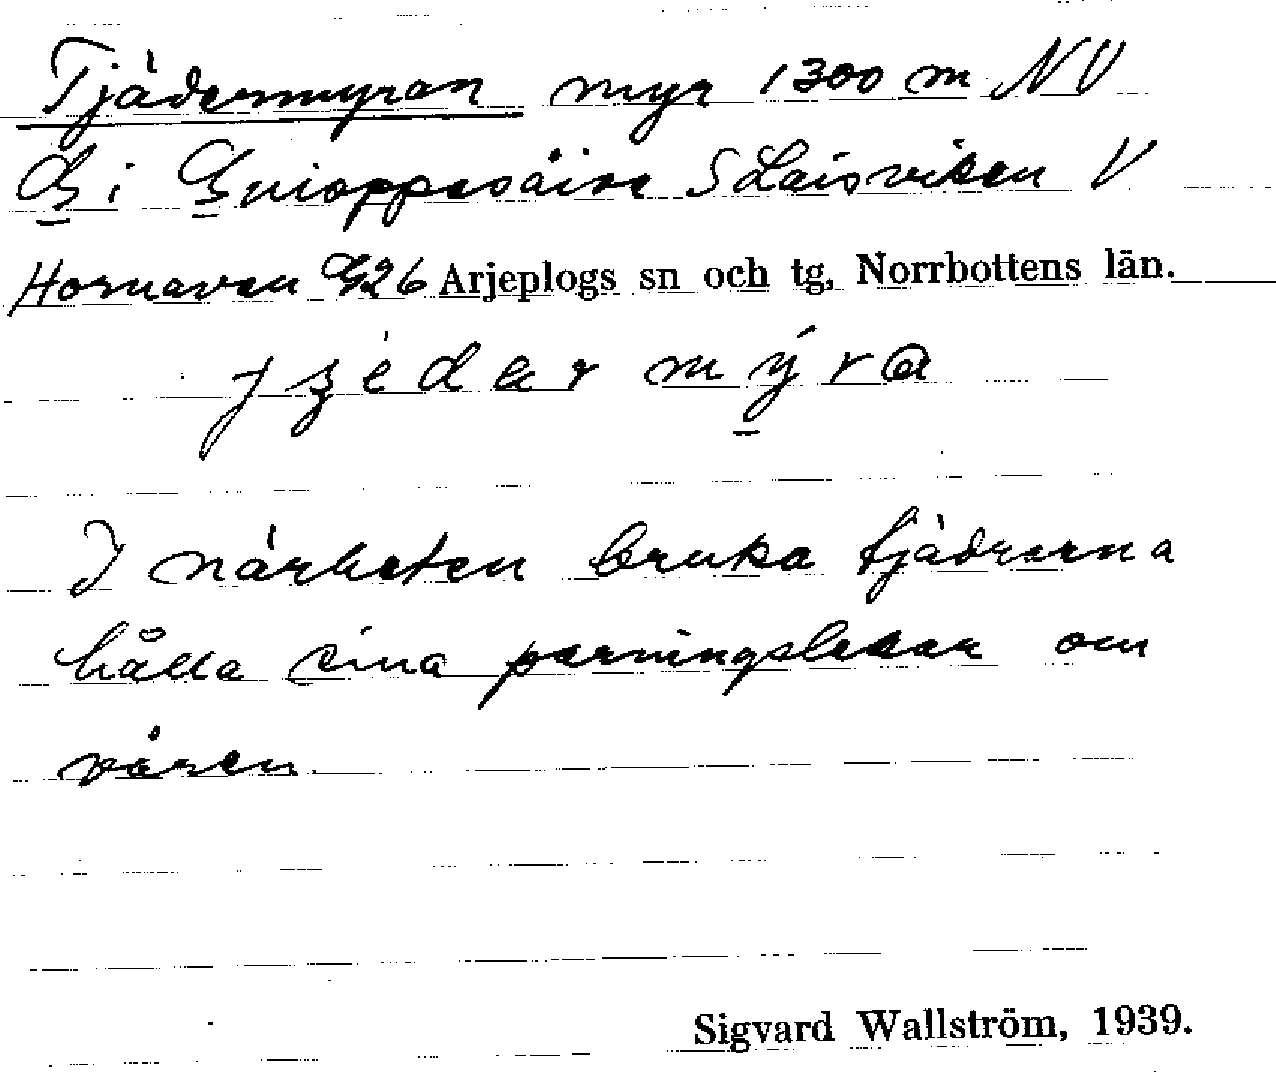 Tjädermyran myr 1300 m NV
G i Guioppesåive S Laisviken V
Hornavan G26 Arjeplogs sn och tg, Norrbottens län.
myra
I närheten bruka tjädrarna
hålla sina parningslekar om
våren.
Sigvard Wallström, 1939.